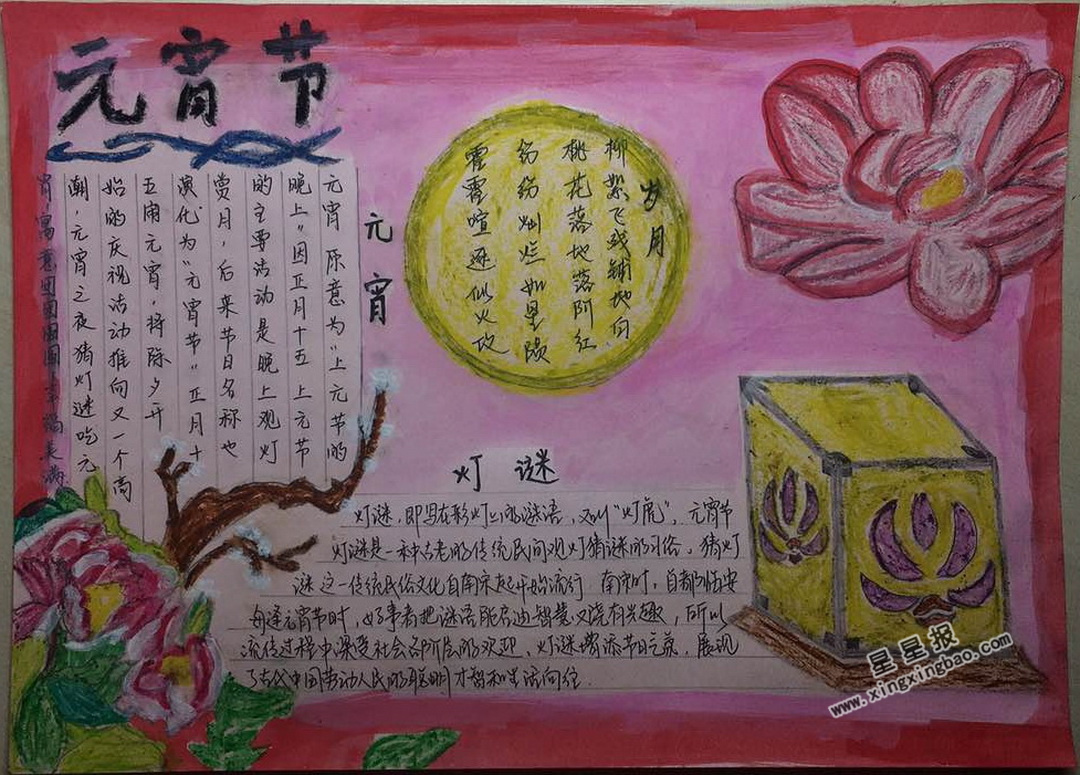 元宵节
元宵
元宵 原意为"上元节的
晚上"因正月十五上元节
的主要活动是晚上观灯
赏月，后来节日名称也
演化为"元宵节"正月十
五闹元宵，将除夕开
始的庆祝活动推向又一个高
潮，元宵之夜猜灯谜吃元
宵寓意团团圆圆幸福美满
岁月
柳絮飞残铺地白
桃花落地落阶红
纷纷灿烂如星陨
喧逐似火攻
灯谜
灯谜，即写在彩灯上的谜语，又叫"灯虎"。元宵节
灯谜是一种古老的传统民间观灯猜谜的习俗，猜灯
谜这一传统民俗文化自南宋起开始流行 南宋时，首都临安
每逢元宵节时，好事者把谜语 启迪智慧又饶有兴趣，所以
流传过程中深受社会各阶层的欢迎、灯谜增添节日气氛，展现
了古代中国劳动人民的聪明才智和生活向往.
星星报
www.xingxingbao.com